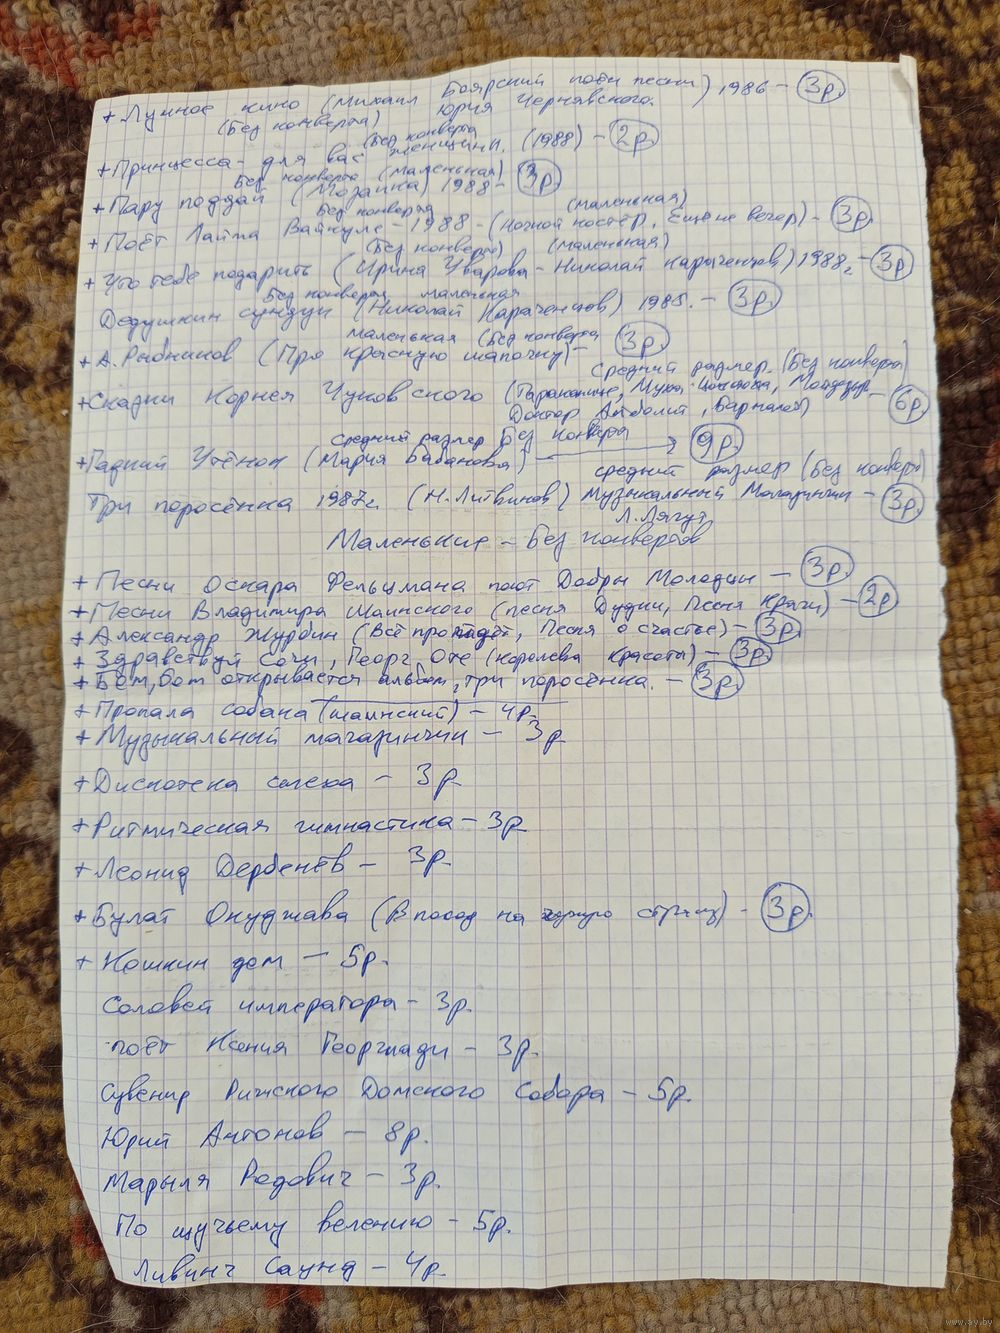 + Лунное кино (Михаил Боярский поёт песни) 1986 - 3р.
(Без конверта) Юрия Чернавского.
(Без конверта
+ Принцесса - для вас женщины. (1988) - 2р.
Без конверта (маленькая)
+ Пару поддай (Мозаика) 1988 - 3р.
Без конверта (маленькая)
+ Поёт Лайма Вайкуле - 1988 - (Ночной костёр, Ещё не вечер) - 3р.
(Без конверта) (маленькая)
+ Что тебе подарить (Ирина Уварова - Николай Караченцов) 1988г - 3р
Без конверта маленькая
Дедушкин сундук (Николай Караченцов) 1985. - 3р.
маленькая (Без конверта
+ А. Рыбников (Про красную шапочку) - 3р.
средний размер. (Без конверта)
+ Сказки Корнея Чуковского (Тараканище, Муха-Цокотуха, Мойдодыр - 6р.
Доктор Айболит, Бармалей)
средний размер Без конверта
+ Гадкий Утёнок (Мария Бабанова) 9р.
средний размер (Без конверта)
Три поросёнка 1987г. (Н. Литвинов) музыкальный Магазинчик - 3р.
Л. Лягут
Маленькие - Без конвертов
+ Песни Оскара Фельцмана поют Добры Молодцы - 3р.
+ Песни Владимира Шаинского (песня Дудки, Песня Крячи) - 2р
+ Александр Журбин (Всё пройдёт, Песня о счастье) - 3р.
+ Здравствуй Сочи, Георг Отс (Королева красоты) - 3р.
+ Бом, бом открывается альбом, три поросёнка. - 3р.
+ Пропала собака (шаинский) - 4р.
+ Музыкальный магазинчик - 3р
+ Дискотека смеха - 3р
+ Ритмическая гимнастика - 3р
+ Леонид Дербенёв - 3р.
+ Булат Окуджава (В поход на чужую страну) - 3р.
+ Кошкин дом - 5р.
Соловей императора - 3р.
поёт Ксения Георгиади - 3р.
Сувенир Рижского Домского Собора - 5р.
Юрий Антонов - 8р.
Марыля Родович - 3р.
По щучьему велению - 5р.
Ливинг Саунд - 4р
www.ay.by